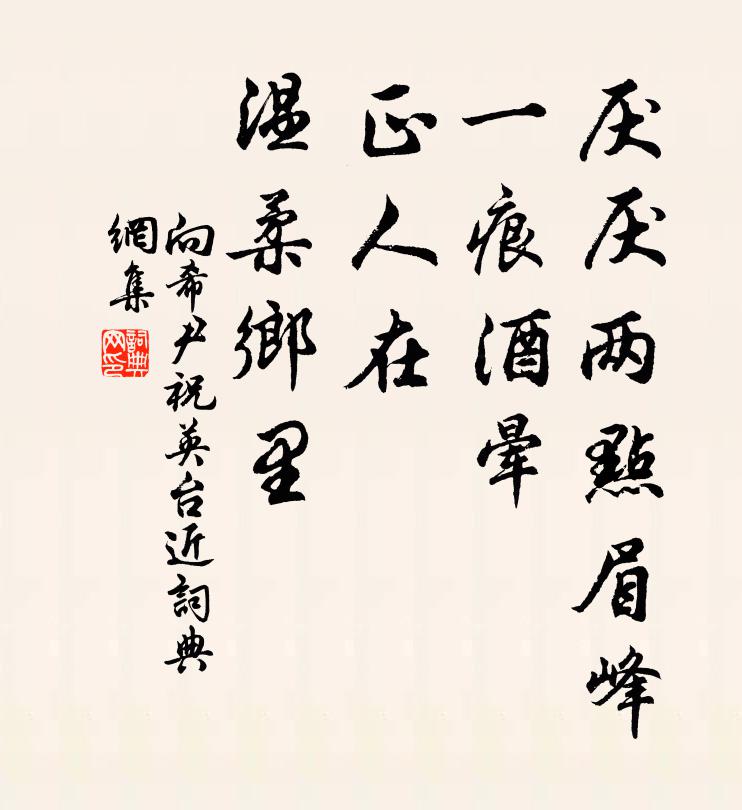 厌厌两點眉峰
一痕酒暈
正人在
温柔鄉里
向希尹祝英台近詞典
網集
詞典
网印